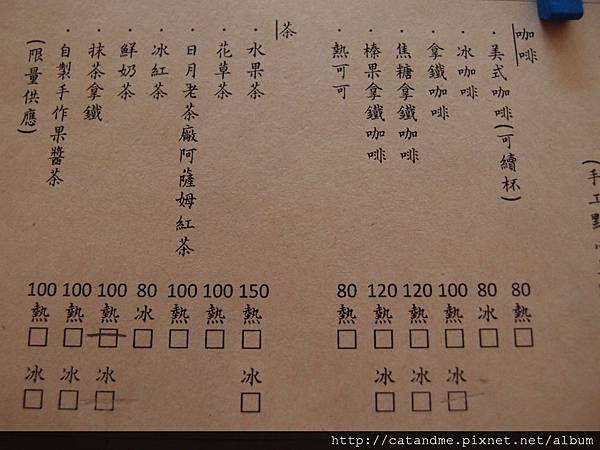 (手工點
咖啡
・美式咖啡(可續杯) 80 熱 □
・冰咖啡 80 冰 □
・拿鐵咖啡 100 熱 □ 冰 □
・焦糖拿鐵咖啡 120 熱 □ 冰 □
・榛果拿鐵咖啡 120 熱 □ 冰 □
・熱可可 80 熱 □
茶
・水果茶 150 熱 □ 冰 □
・花草茶 100 熱 □
・日月老茶廠阿薩姆紅茶 100 熱 □
・冰紅茶 80 冰 □
・鮮奶茶 100 熱 □ 冰 □
・抹茶拿鐵 100 熱 □ 冰 □
・自製手作果醬茶 100 熱 □ 冰 □
(限量供應)
http://catandme.pixnet.net/album